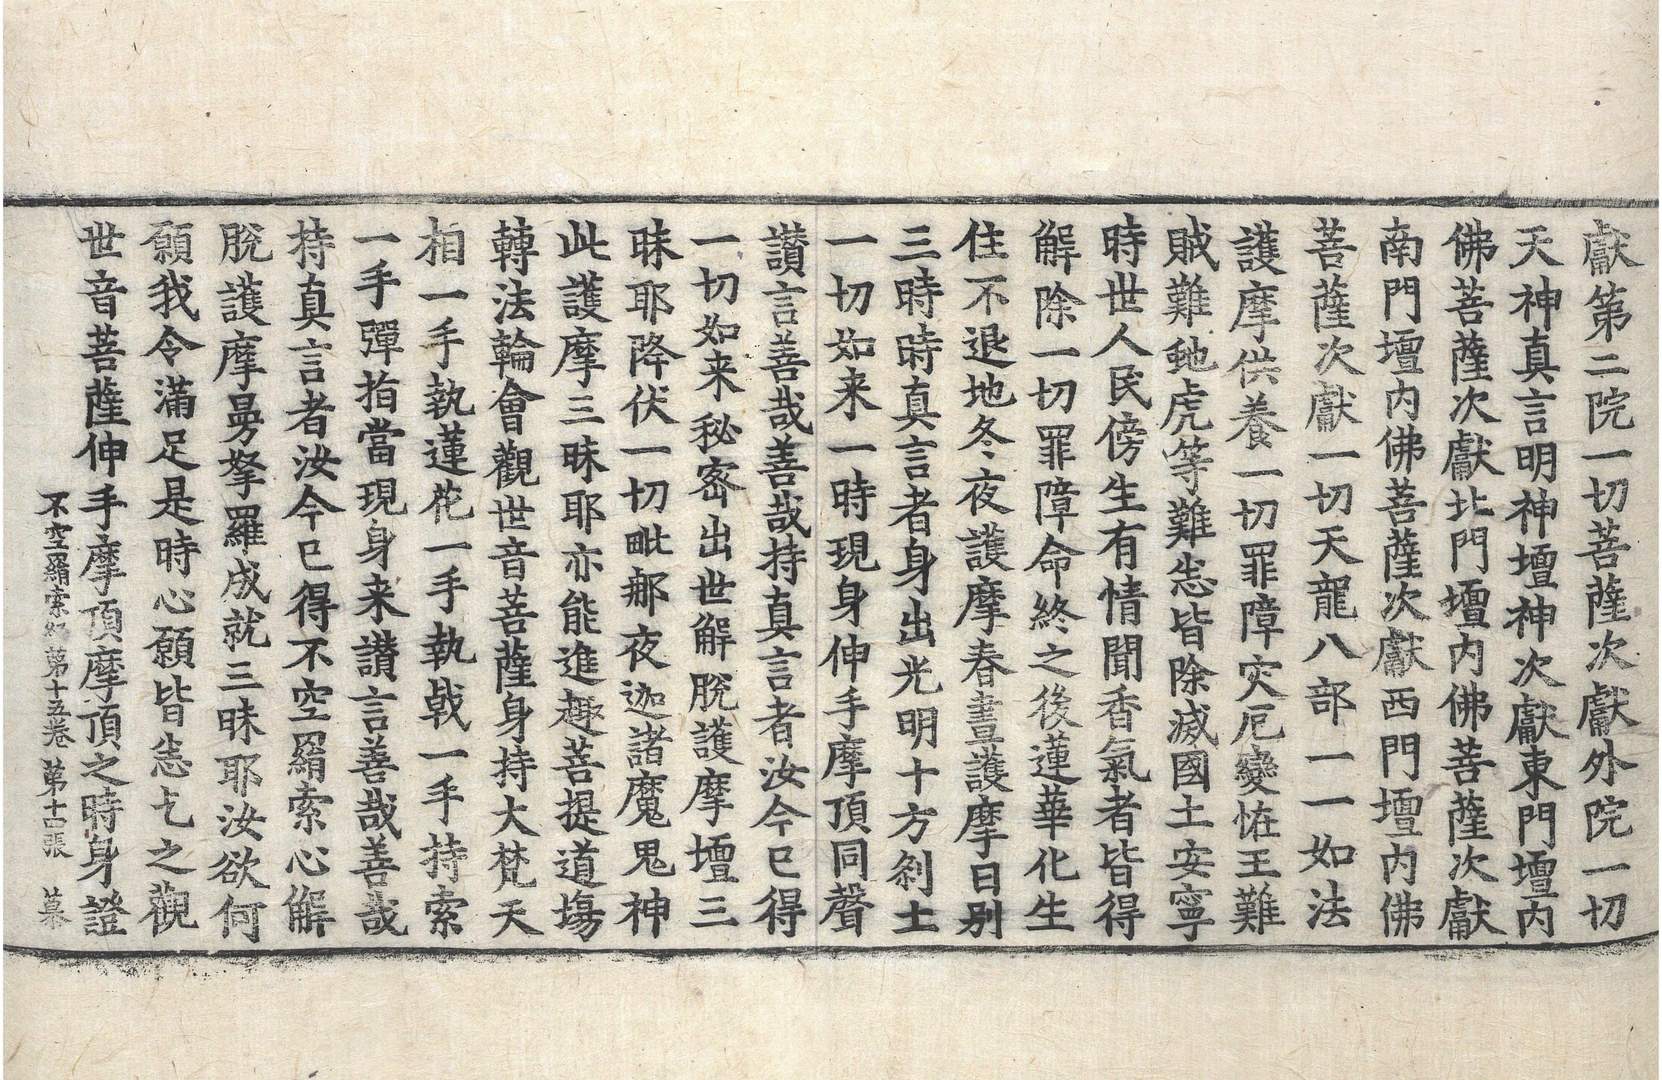 獻第二院一切菩薩次獻外院一切
天神真言明神壇神次獻東門壇內
佛菩薩次獻北門壇內佛菩薩次獻
南門壇內佛菩薩次獻西門壇內佛
菩薩次獻一切天龍八部一一如法
護摩供養一切罪障灾厄變恠王難
賊難虵虎等難悉皆除滅國土安寧
時世人民傍生有情聞香氣者皆得
解除一切罪障命終之後蓮華化生
住不退地冬夜護摩春晝護摩日別
三時時真言者身出光明十方剎土
一切如来一時現身伸手摩頂同聲
讃言善哉善哉持真言者汝今已得
一切如来秘密出世解脫護摩壇三
昧耶降伏一切毗那夜迦諸魔鬼神
此護摩三昧耶亦能進趣菩提道場
轉法輪會觀世音菩薩身持大梵天
相一手執蓮花一手執戟一手持索
一手彈指當現身来讃言善哉善哉
持真言者汝今已得不空羂索心解
脫護摩曼拏羅成就三昧耶汝欲何
願我令滿足是時心願皆悉乞之觀
世音菩薩伸手摩頂摩頂之時身證
不空羂索經 第十五卷 第十四張 慕